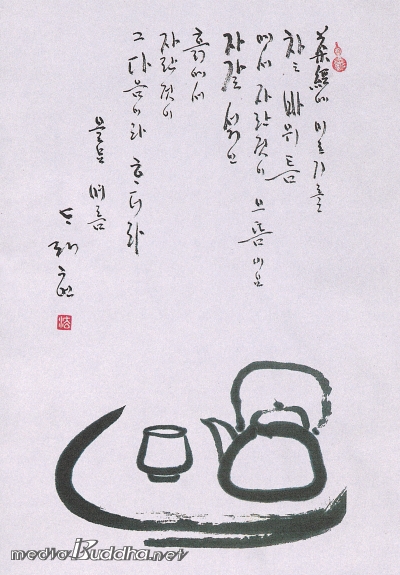 茶經에 이르기를
차는 바위틈
에서 자란 것이 으뜸이요
자갈
흙에서
자란 것이
그 다음이라 하더라
여름
mediaBuddha.net